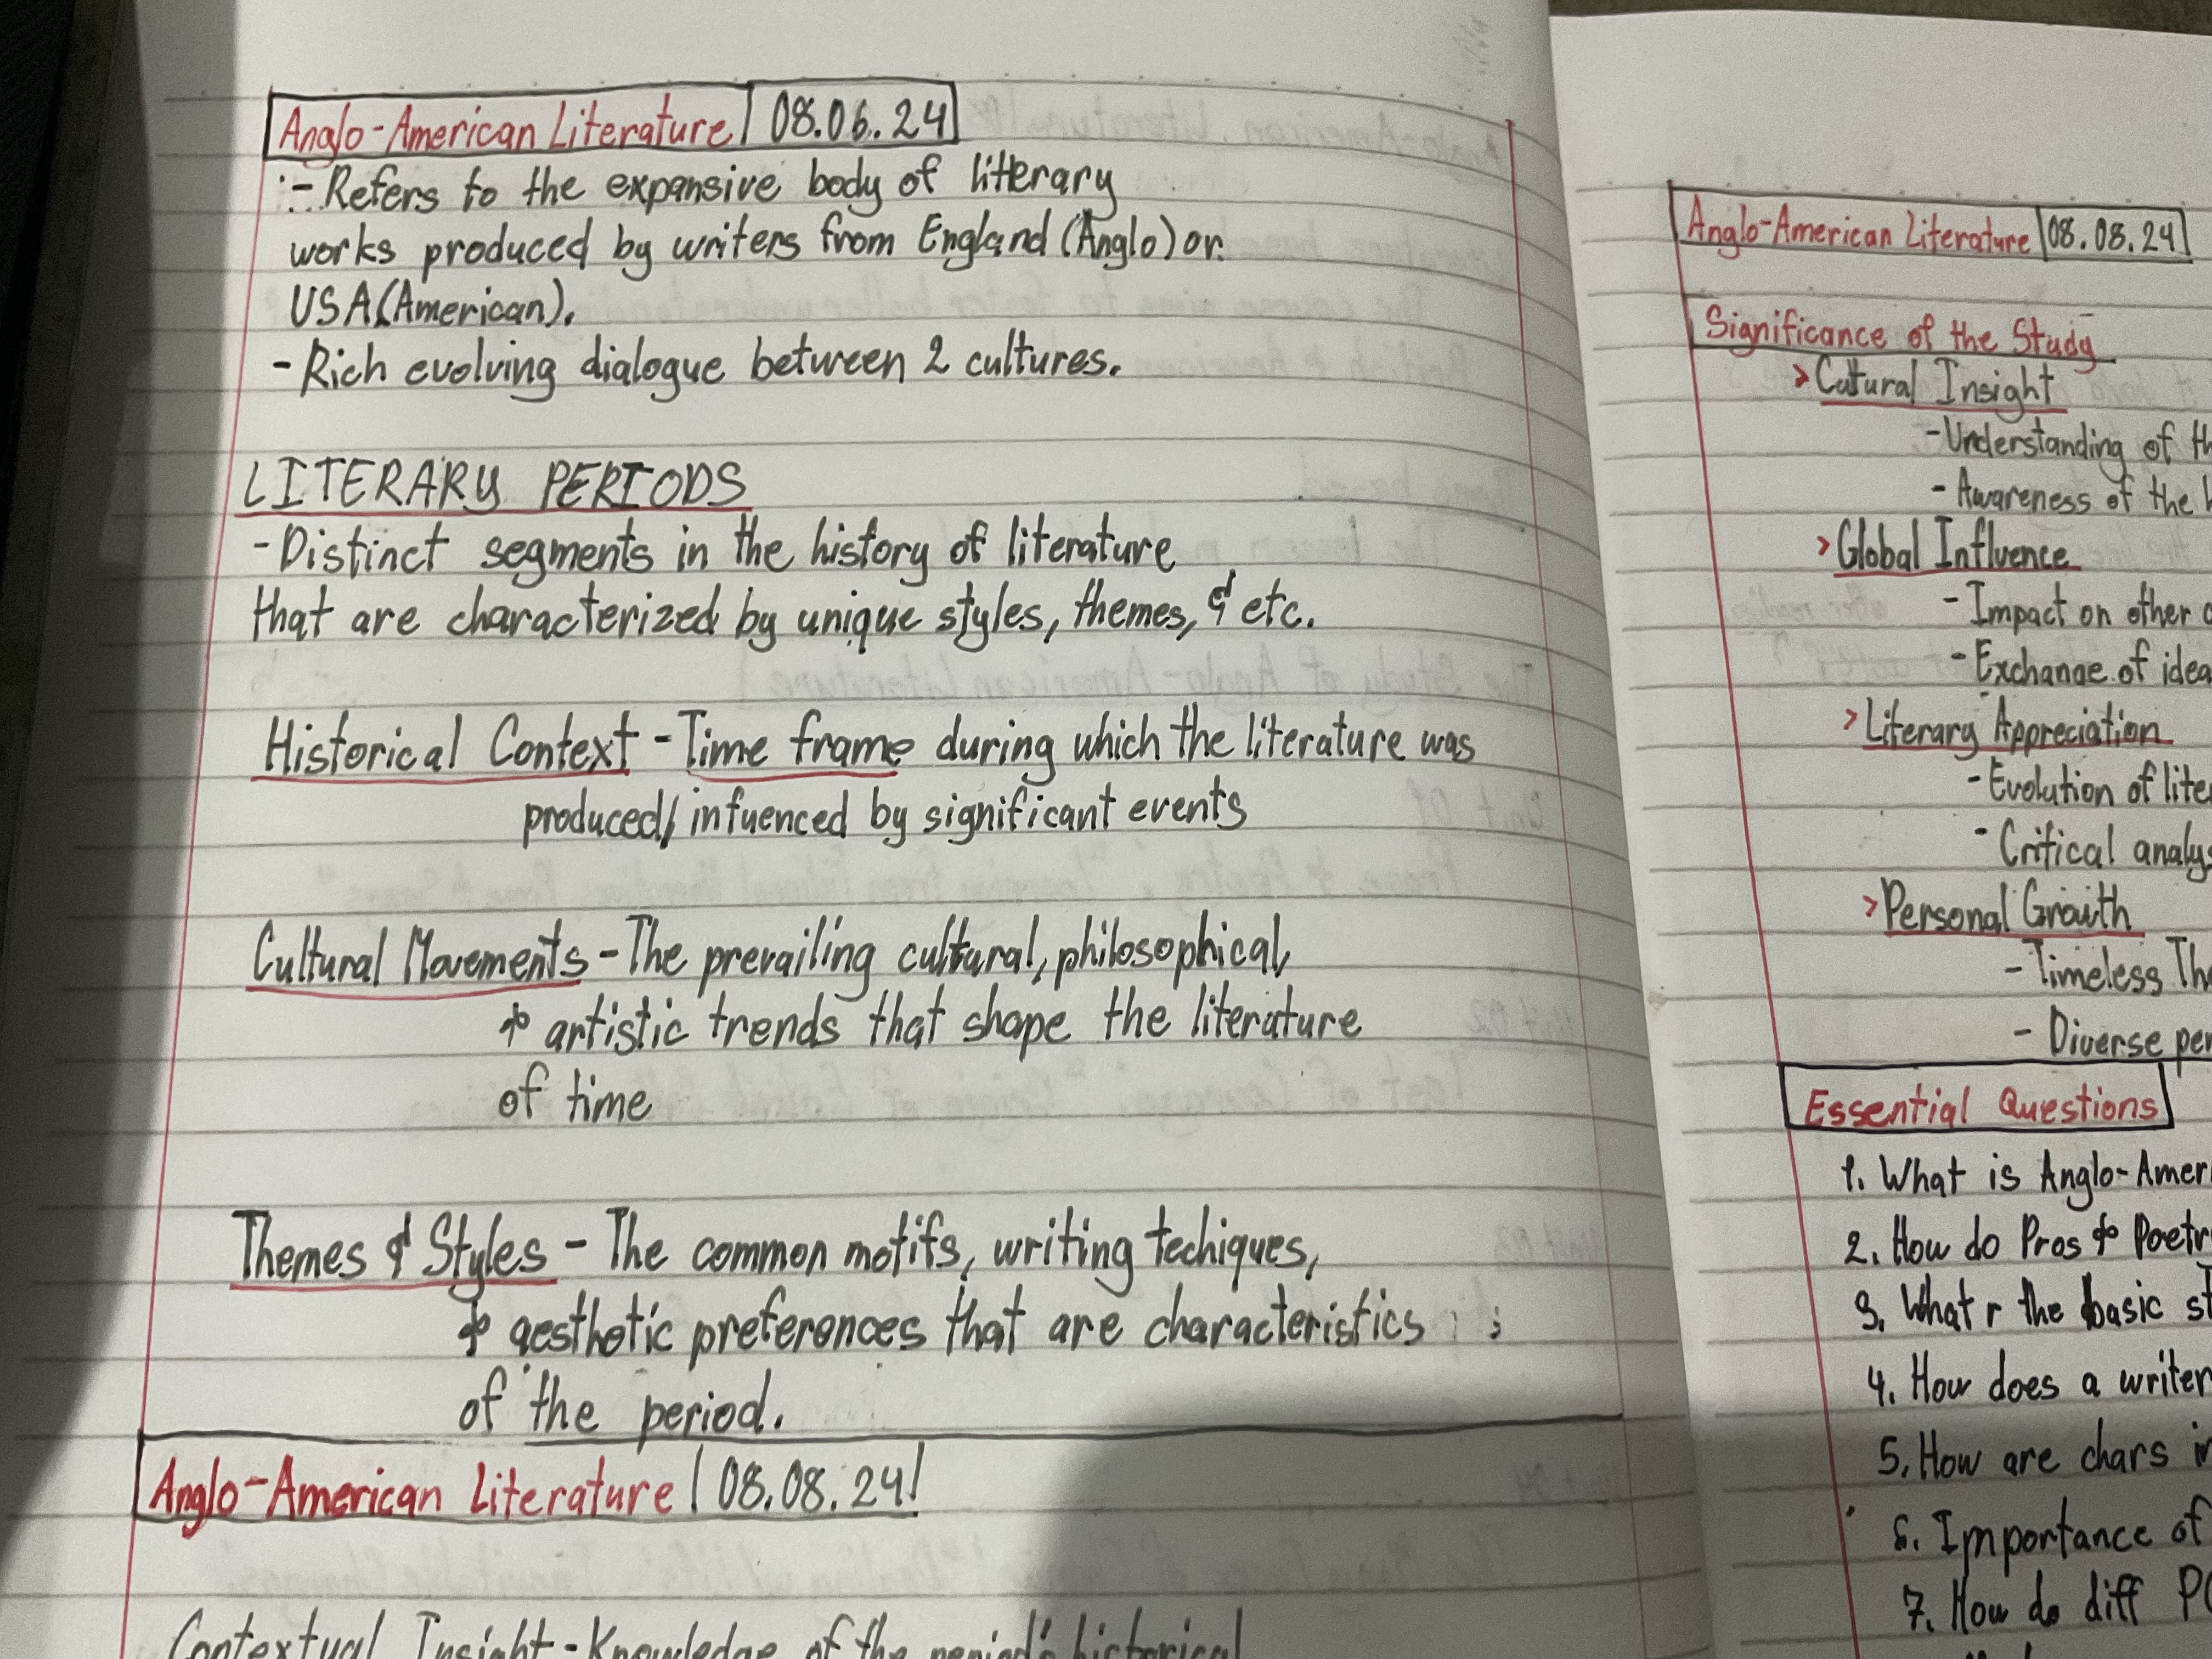 Anglo-American Literature | 08.06.24
- Refers to the expansive body of litterary
works produced by writers from England (Anglo) or
USA (American).
- Rich evolving dialogue between 2 cultures.
LITERARY PERIODS
- Distinct segments in the history of literature
that are characterized by unique styles, themes, & etc.
Historical Context - Time frame during which the literature was
produced/ infuenced by significant events
Cultural Movements - The prevailing cultural, philosophical,
& artistic trends that shape the literature
of time
Themes & Styles - The common motifs, writing techiques,
& aesthetic preferences that are characteristics
of the period.
Anglo-American Literature | 08.08.24
Contextual Insight - Knowledge of the period's historical
Anglo-American Literature | 08.08.24
Significance of the Study
> Cultural Insight
- Understanding of
- Awareness of the
> Global Influence
- Impact on other
- Exchange of
> Literary Appreciation
- Evolution of
- Critical
> Personal Growth
- Timeless
- Diverse
Essential Questions
1. What is
2. How do Pros & Poetr
3. What r the basic
4. How does a writer
5. How are chars
6. Importance of
7. How do diff